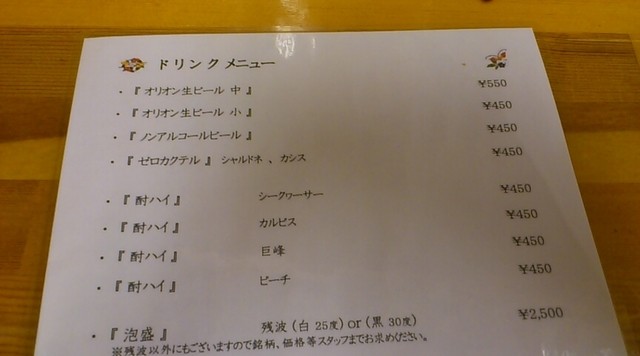 ドリンクメニュー
・『 オリオン生ビール 中 』 ¥550
・『 オリオン生ビール 小 』 ¥450
・『 ノンアルコールビール 』 ¥450
・『 ゼロカクテル 』 シャルドネ 、カシス ¥450
・『 酎ハイ 』 シークヮーサー ¥450
・『 酎ハイ 』 カルピス ¥450
・『 酎ハイ 』 巨峰 ¥450
・『 酎ハイ 』 ピーチ ¥450
・『 泡盛 』 残波 (白 25度) or (黒 30度) ¥2,500
※残波以外にもございますので銘柄、価格等スタッフまでお求めください。